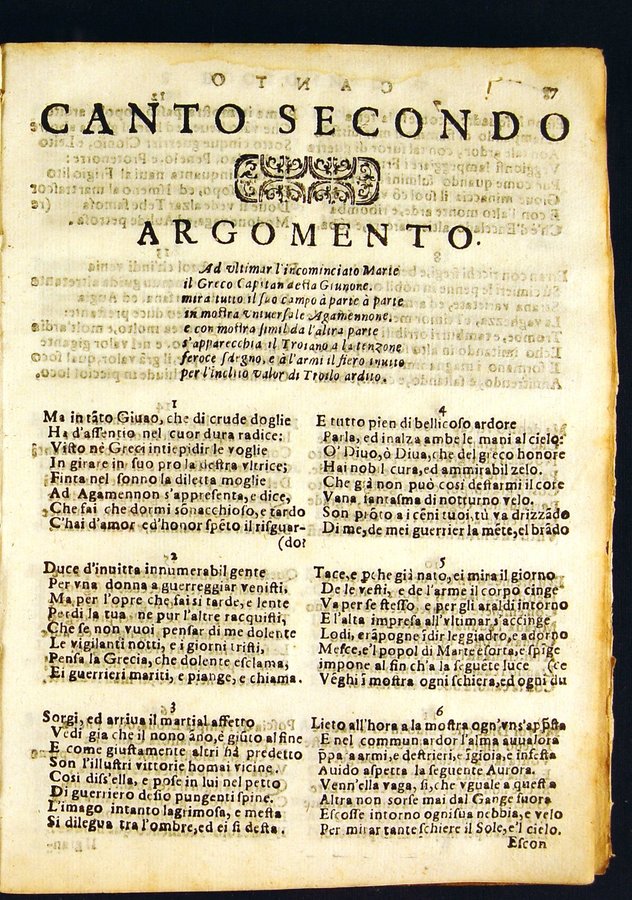 CANTO SECONDO
ARGOMENTO.
Ad vltimar l'incominciato Marte
il Greco Capitan desta Giunone.
mira tutto il suo campo à parte à parte
in mostra vniuersale Agamennone.
e con mostra simil da l'altra parte
s'apparecchia il Troiano a la tenzone
feroce sdegno, e à l'armi il fiero inuito
per l'inclito valor di Troilo ardito.
1
Ma in tãto Giuno, che di crude doglie
Ha d'assentio nel cuor dura radice;
Visto nè Greci intiepidir le voglie
In girare in suo pro la destra vltrice;
Finta nel sonno la diletta moglie
Ad Agamennon s'appresenta, e dice,
Che fai che dormi sõnacchioso, e tardo
C'hai d'amor ed'honor spẽto il risguar-
(do?
2
Duce d'inuitta innumerabil gente
Per vna donna a guerreggiar venisti,
Ma per l'opre che fai si tarde, e lente
Perdi la tua, ne pur l'altre racquisti,
Che se non vuoi pensar di me dolente
Le vigilanti notti, e i giorni tristi,
Pensa la Grecia, che dolente esclama,
Ei guerrieri mariti, e piange, e chiama.
3
Sorgi, ed arriua il martial affetto
Vedi gia che il nono ãno, e giũto al fine
E come giustamente altri hà predetto
Son l'illustri vittorie homai vicine.
Così diss'ella, e pose in lui nel petto
Di guerriero desio pungenti spine.
L'imago intanto lagrimosa, e mesta
Si dilegua tra l'ombre, ed ei si desta.
4
E tutto pien di bellicoso ardore
Parla, ed inalza ambe le mani al cielo:
O' Diuo, ò Diua, che del greco honore
Hai nobil cura, ed ammirabil zelo.
Che già non può così destarmi il core
Vana fantasma di notturno velo.
Son prõto a i cẽni tuoi, tù va drizzãdo
Di me, de mei guerrier la mẽte, el brãdo
5
Tace, e pche già nato, ei mira il giorno
De le vesti, e de l'arme il corpo cinge
Va per se stesso e per gli araldi intorno
E l'alta impresa all'vltimar s'accinge
Lodi, rãpogne ĩdir leggiadro, e adorno
Mesce, e'l popol di Marte esorta, e spĩge
impone al fin ch'a la seguẽte luce (ce
Vẽghi ĩ mostra ogni schiera, ed ogni du
6
Lieto all'hora a la mostra ogn'vn s'appsta
E nel commun ardor l'alma auualora
ppara armi, e destrieri, e
Auido aspetta la seguente Aurora.
Venn'ella vaga, si, che vguale a questa
Altra non sorse mai dal Gange fuora
Escosse intorno ogni sua nebbia, e velo
Per mirar tante schiere il Sole, e'l cielo.
Escon